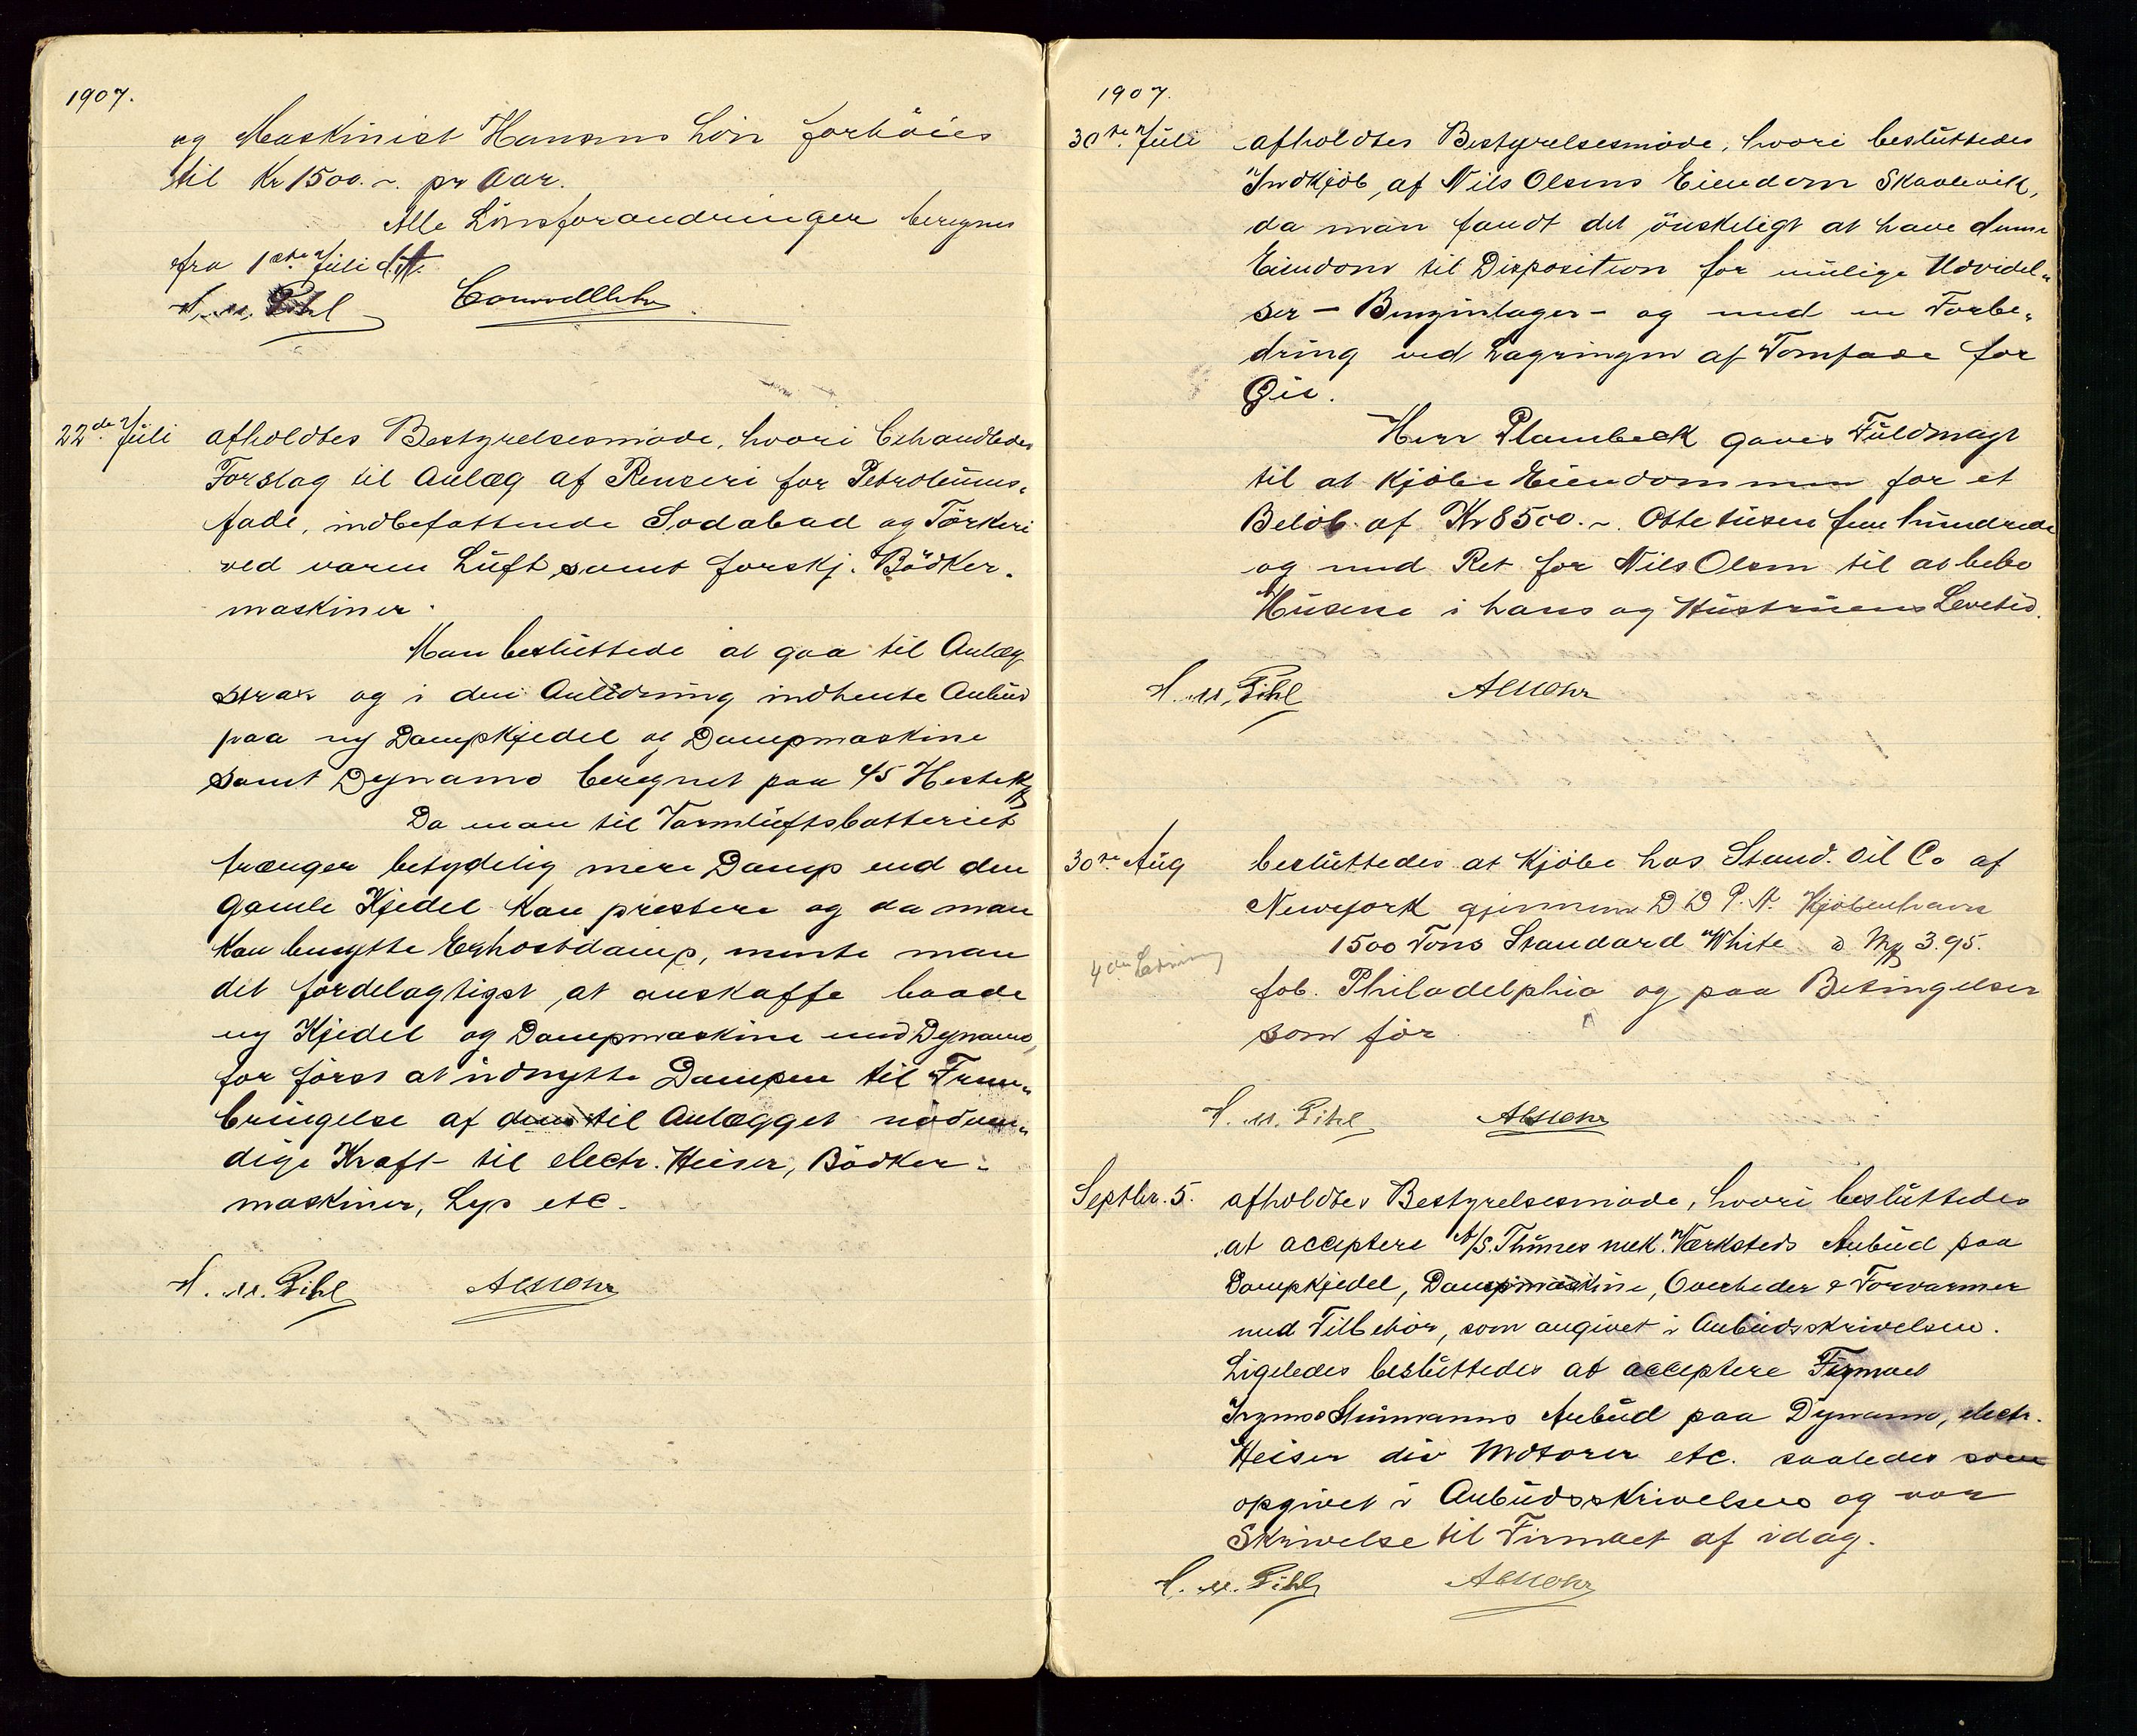 1907.
og Maskinist Hansens Løn forhöies
til Kr 1500.~. pr Aar.
Alle Lönsforandringer beregnes
fra 1ste Juli d.A.
H. M. Pihl
22de Juli afholdtes Bestyrelsesmöde, hvori behandledes
Forslag til Anlæg af Renseri for Petroleums-
fade, indbefattende Sodabad og Törkeri
ved varm Luft samt forskj. Bödker-
maskiner.
Man besluttede at gaa til Anlæg
strax og i den Anledning indhente Anbud
paa ny Dampkjedel og Dampmaskine
samt Dynamo beregnet paa 45 Hestekr
Da man til Varmluftsbatteriet
trænger betydelig mere Damp end den
gamle Kjedel kan prestere og da man
kan benytte Exhostdamp, mente man
det fordelagtigst at anskaffe baade
ny Kjedel og Dampmaskine med Dynamo,
for först at udnytte Dampen til Frem-
bringelse af den til Anlægget nödven-
dige Kraft til electr. Heiser, Bödker-
maskiner, Lys etc.
H. M. Pihl
1907.
30te Juli afholdtes Bestyrelsesmöde, hvori besluttedes
Indkjöb af Nils Olsens Eiendom Skavlevik,
da man fandt det önskeligt at have denne
Eiendom til Disposition for mulige Udvidel-
ser - Benzinlager - og med en Forbe-
dring ved Lagringen af Tomfade for
Öie.
Herr Plambeck gaves Fuldmagt
til at kjöbe Eiendommen for et
Belöb af Kr 8500.~. Ottetusen fem hundrede
og med Ret for Nils Olsen til at bebo
Husene i hans og Hustruens Levetid.
H. M. Pihl
30te Aug besluttedes at kjöbe hos Stand. Oil Co af
Newyork gjennem D D P. A. Kjöbenhavn
1500 Tons Standard White à 3.95.
4de Ladning
fob. Philadelphia og paa Betingelser
som för
H. M. Pihl
Septbr. 5. afholdtes Bestyrelsesmöde, hvori besluttedes
at acceptere A/S. Thunes mek. Værksteds Anbud paa
Dampkjedel, Dampmaskine, Overheder & Forvarmer
med Tilbehör, som angivet i Anbudsskrivelsen.
Ligeledes besluttedes at acceptere Firmaet
Anbud paa Dynamo, electr.
Heiser div Motorer etc. saaledes som
opgivet i Anbudsskrivelsen og vor
Skrivelse til Firmaet af idag.
H. M. Pihl